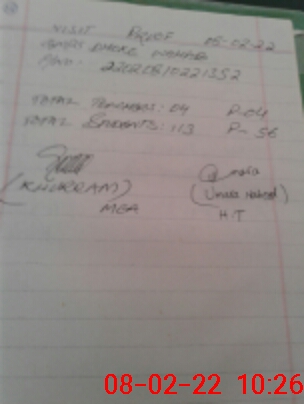 VISIT PROOF 08-02-22
GMPS DHOKE WAHAB
A/NO: 22020810221352
TOTAL TEACHERS: 04 P-04
TOTAL STUDENTS: 113 P- 56
(KHURRAM)
MEA
H.T
08-02-22 10:26